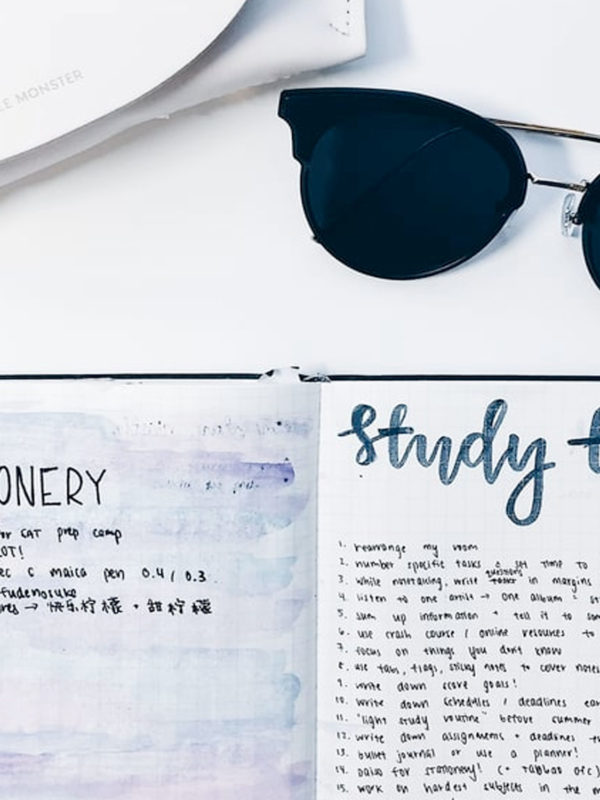 LE MONSTER
ONERY
for CAT prep camp
LOT!
ec c maica pen 0.4 / 0.3
fudenosuke
→ 快乐柠檬 + 甜柠檬
study t
1. rearrange my room
2. number specific tasks + set time to
3. while notetaking, write questions in margins
4. listen to one artist → one album =
5. sum up information + tell it to som
6. use crash course / online resources to
7. focus on things you don't know
8. use tabs, flags, sticky notes to cover notes
9. write down score goals!
10. write down schedules / deadlines ear
11. "light study routine" before summer
12. write down assignments + deadlines
13. bullet journal or use a planner!
14. daiso for stationery! (+ tabbao ofc)
15. work on hardest subjects in the m